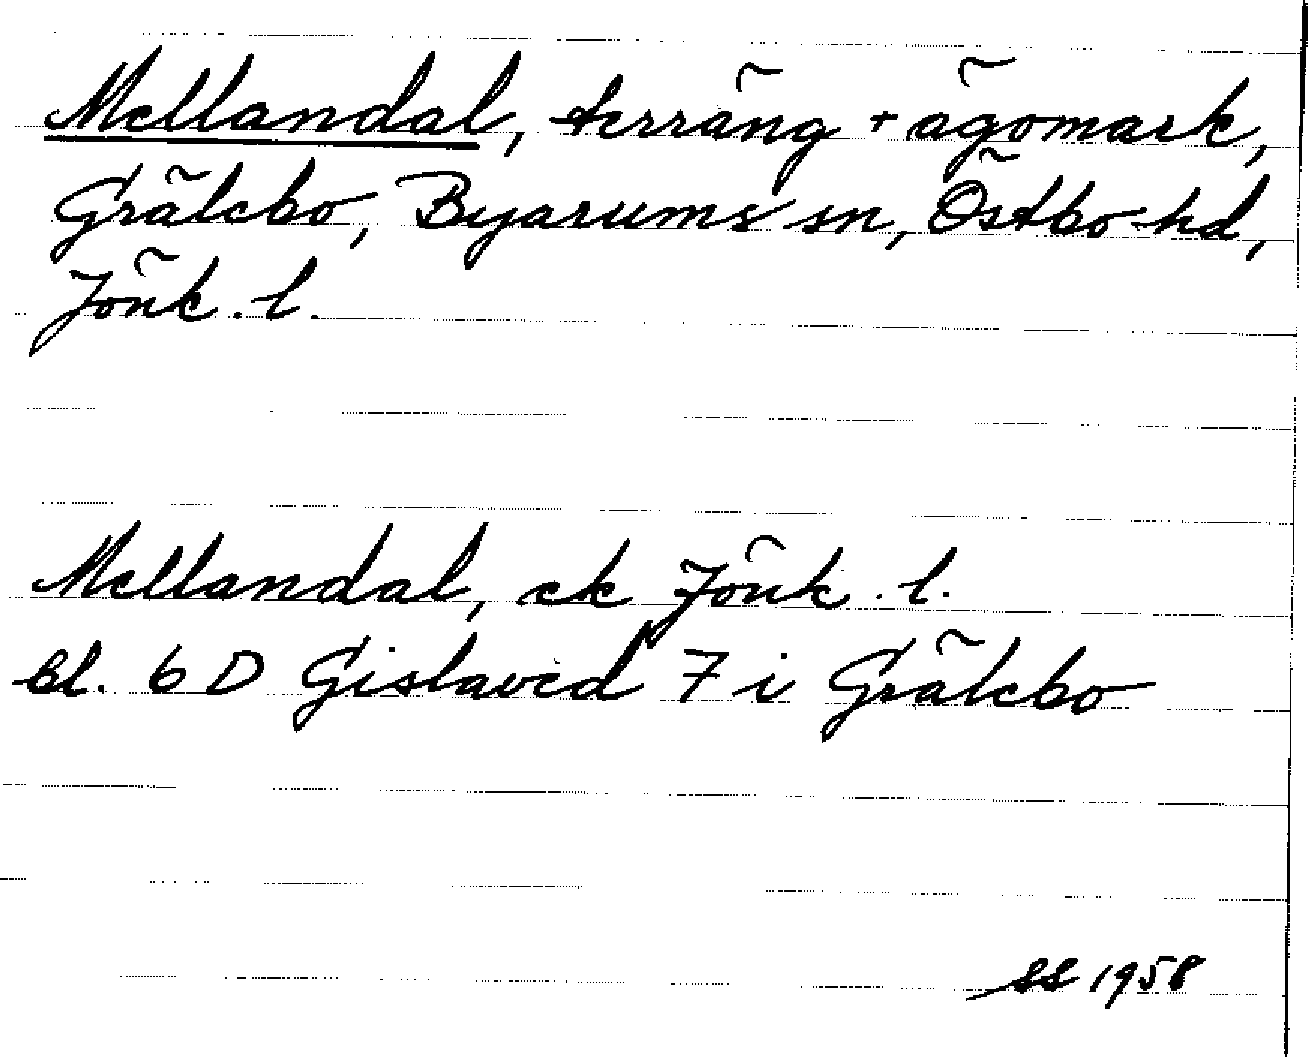 Mellandal, terräng + ägomark,
Grälebo, Byarums sn, Östbo hd,
Jönk. l.
Mellandal, ek Jönk. l.
bl. 6 D Gislaved 7 i Grälebo
SS 1958